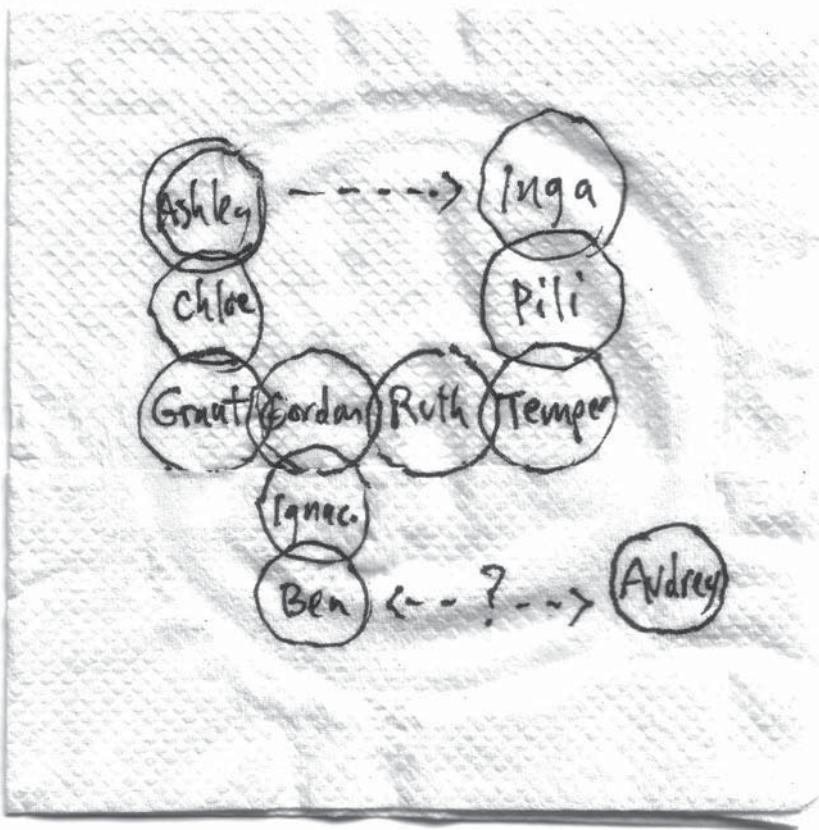 Ashley -----> Inga
Chloe Pili
Grant Gordon Ruth Temper
Ignac.
Ben <--?--> Audrey